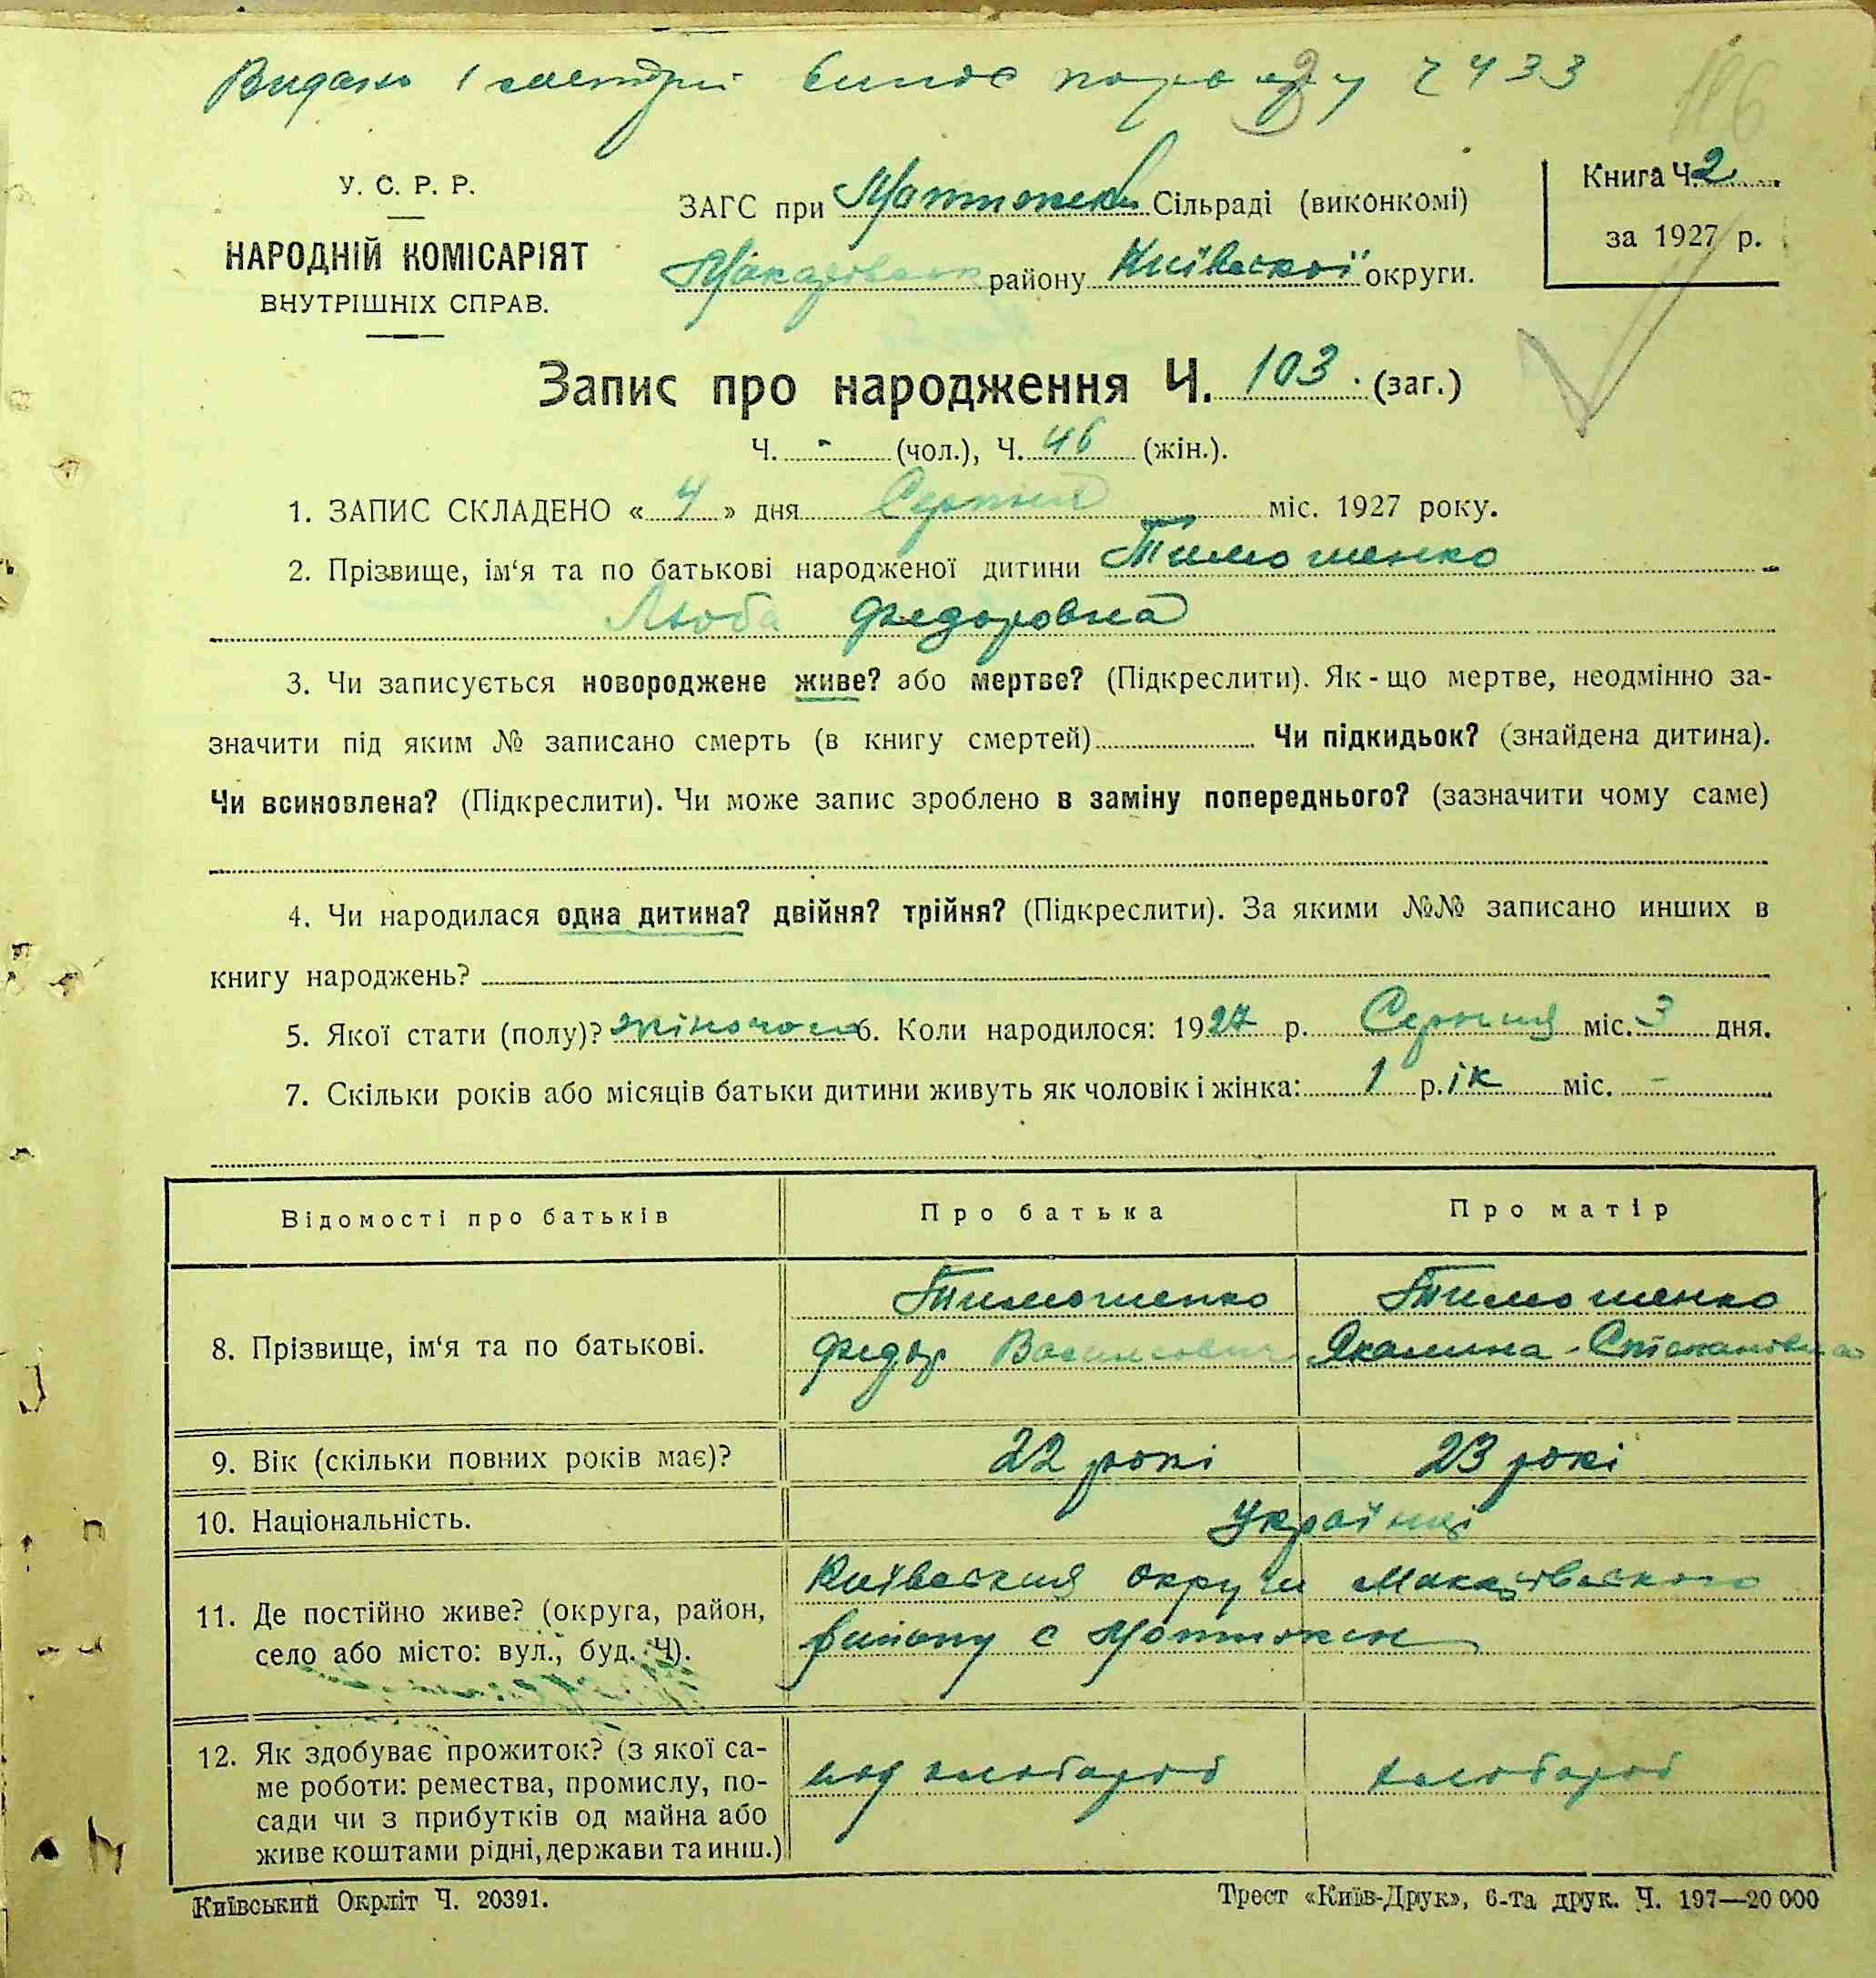 Видано 2433
186
У. С. Р. Р.
НАРОДНІЙ КОМІСАРІЯТ
ВНУТРІШНІХ СПРАВ.
ЗАГС при Сільраді (виконкомі)
району Київської округи.
Книга Ч. 2
за 1927 р.
Запис про народження Ч. 103 (заг.)
Ч. - (чол.), Ч. 46 (жін.).
1. ЗАПИС СКЛАДЕНО « 4 » дня Серпня міс. 1927 року.
2. Прізвище, ім‘я та по батькові народженої дитини Тимошенко
Люба Федоровна
3. Чи записується новороджене живе? або мертве? (Підкреслити). Як-що мертве, неодмінно за-
значити під яким № записано смерть (в книгу смертей) Чи підкидьок? (знайдена дитина).
Чи всиновлена? (Підкреслити). Чи може запис зроблено в заміну попереднього? (зазначити чому саме)
4. Чи народилася одна дитина? двійня? трійня? (Підкреслити). За якими №№ записано инших в
книгу народжень?
5. Якої стати (полу)? жіночого 6. Коли народилося: 1927 р. Серпня міс. 3 дня.
7. Скільки років або місяців батьки дитини живуть як чоловік і жінка: 1 р. ік міс. -
Відомості про батьків Про батька Про матір
8. Прізвище, ім‘я та по батькові.
Тимошенко Тимошенко
Федор Василович Якилина - Степановна
9. Вік (скільки повних років має)? 22 рокі 23 рокі
10. Національність. Українці
11. Де постійно живе? (округа, район,
село або місто: вул., буд. Ч).
Київския округи Макарівського
району с
12. Як здобуває прожиток? (з якої са-
ме роботи: ремества, промислу, по-
сади чи з прибутків од майна або
живе коштами рідні, держави та инш.)
хлебороб хлебороб
Київський Окрліт Ч. 20391.
Трест «Київ-Друк», 6-та друк. Ч. 197—20 000